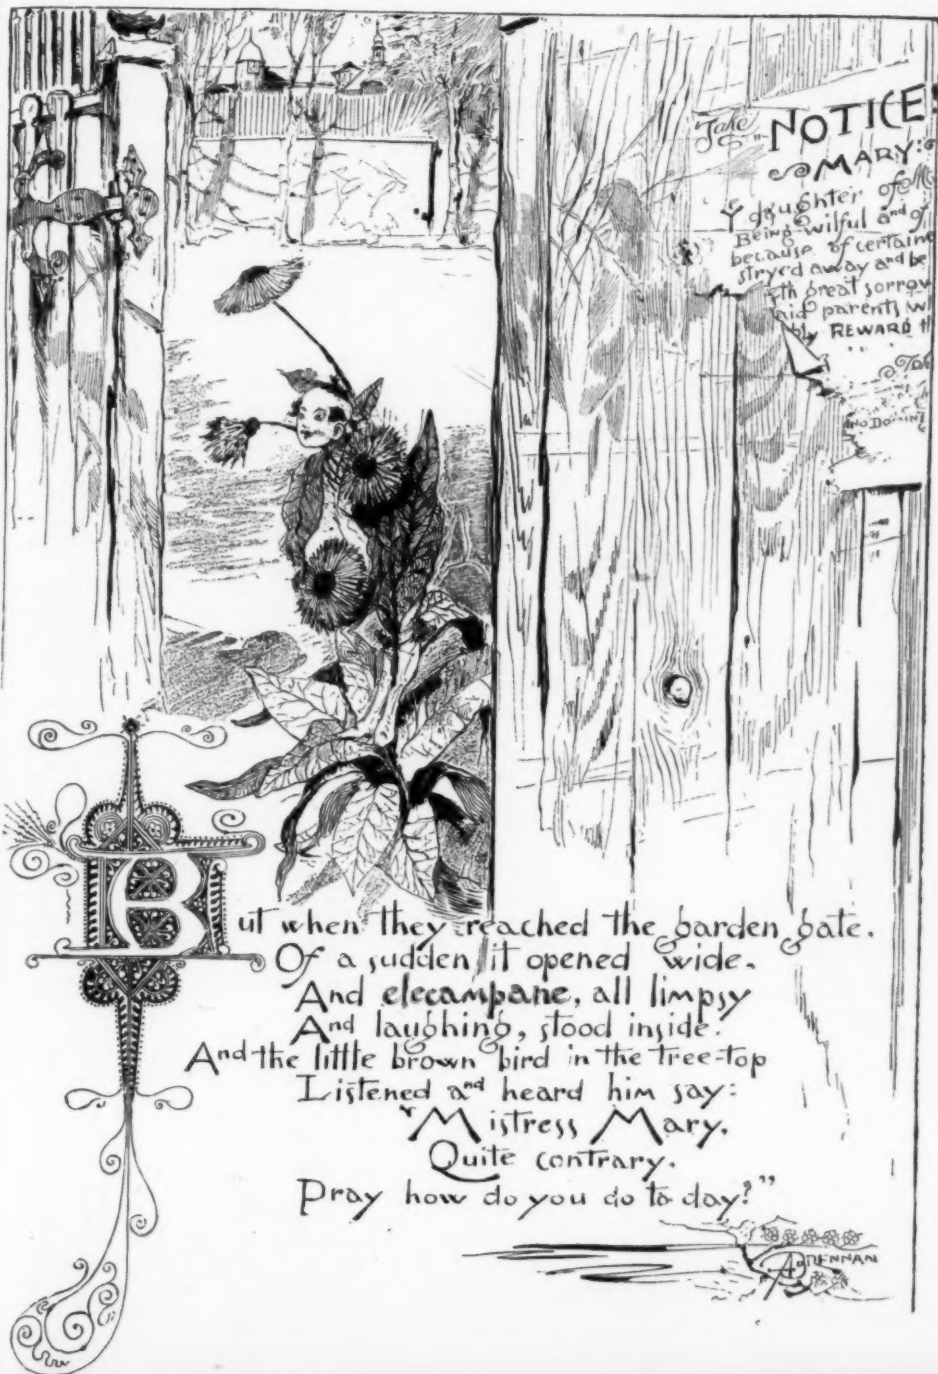 Take NOTICE:
MARY:
Y daughter of M
Being wilful and of
because of certaine
stryed away and be
th great sorrow
aid parents w
bly REWARD th
NO DOMIN
But when they reached the garden gate.
Of a sudden it opened wide.
And elecampane, all limpsy
And laughing, stood inside.
And the little brown bird in the tree-top
Listened and heard him say:
"Mistress Mary,
Quite contrary.
Pray how do you do to day?"
A BRENNAN